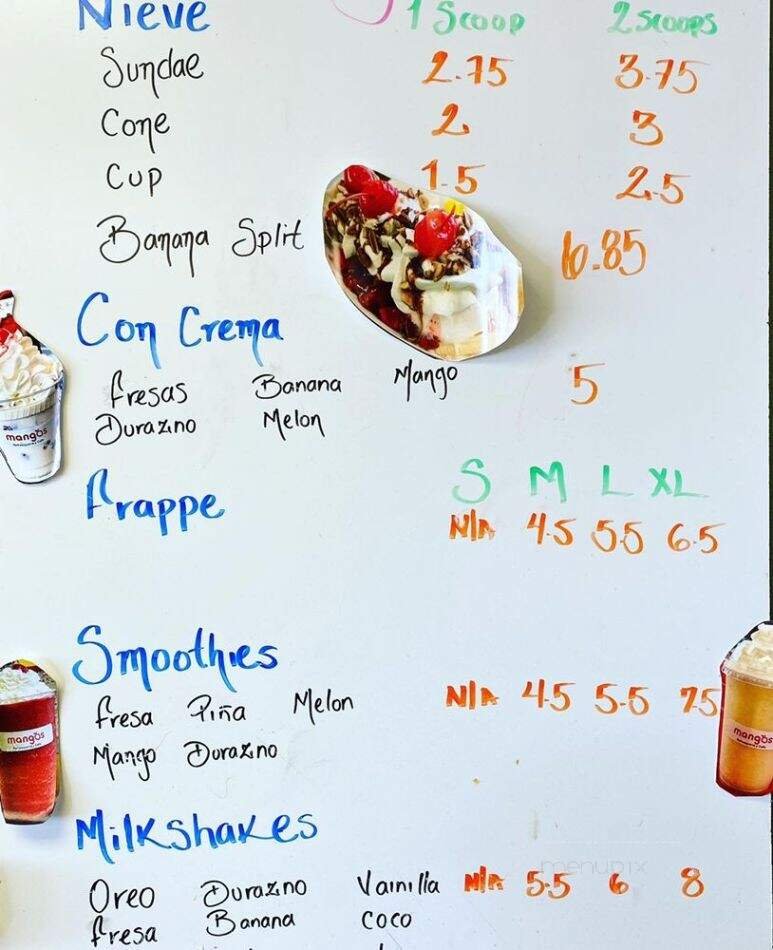 Nieve 1 Scoop 2 scoops
Sundae 2.75 3.75
Cone 2 3
Cup 1.5 2.5
Banana Split 6.85
Con Crema
fresas Banana Mango 5
Durazno Melon
mangos
frappe S M L XL
N/A 4.5 5.5 6.5
Smoothies
fresa Piña Melon N/A 4.5 5.5 7.5
mangos mangos
Mango Durazno
Milkshakes
Oreo Durazno Vainilla N/A 5.5 6 8
menupix
fresa Banana coco